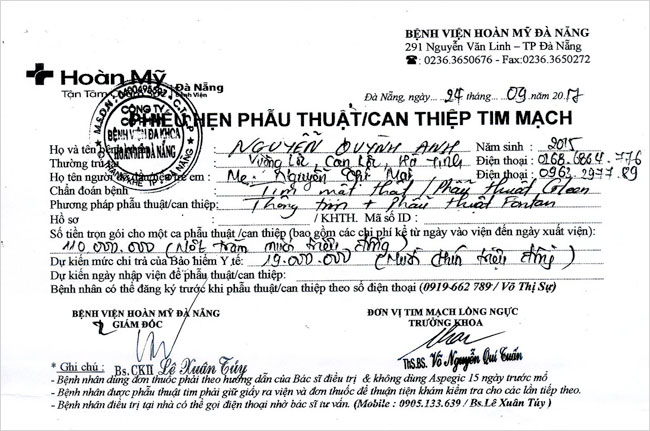 BỆNH VIỆN HOÀN MỸ ĐÀ NẴNG
291 Nguyễn Văn Linh – TP Đà Nẵng
☎: 0236.3650676 - Fax:0236.3650272
Hoàn Mỹ Đà Nẵng
Tận Tâm Bệnh Viện
Đà Nẵng, ngày... 27 tháng... 09 .năm 2017
PHIẾU HẸN PHẪU THUẬT/CAN THIỆP TIM MẠCH
M.S.D.N: 0400495597 C.T.C.P
CÔNG TY
CỔ PHẦN
BỆNH VIỆN ĐA KHOA
HOÀN MỸ ĐÀ NẴNG
Họ và tên bệnh NGUYỄN QUỲNH ANH Năm sinh : 2015
Thường trú Can Lộc, Hà Tĩnh Điện thoại : 0168.6864.776
Họ tên người trẻ em : Mẹ: Nguyễn Thị Mai Điện thoại: 0963.2977.89
Chẩn đoán bệnh : Tim một thất / Phẫu thuật Gleen
Phương pháp phẫu thuật/can thiệp: Thông tim + Phẫu thuật Fontan
Hồ sơ : / KHTH. Mã số ID :
Số tiền trọn gói cho một ca phẫu thuật /can thiệp (bao gồm các chi phí kể từ ngày vào viện đến ngày xuất viện):
110.000.000 (Một trăm mười triệu đồng)
Dự kiến mức chi trả của Bảo hiểm Y tế: 19.000.000 (Mười chín triệu đồng)
Dự kiến ngày nhập viện để phẫu thuật/can thiệp:
Bệnh nhân có thể đăng ký trước khi phẫu thuật/can thiệp theo số điện thoại (0919-662 789/ Võ Thị Sự)
BỆNH VIỆN HOÀN MỸ ĐÀ NẴNG ĐƠN VỊ TIM MẠCH LỒNG NGỰC
GIÁM ĐỐC TRƯỞNG KHOA
* Ghi chú : Bs.CKII Lê Xuân Túy ThS.BS. Võ Nguyễn Quí Tuấn
- Bệnh nhân dùng đơn thuốc phải theo hướng dẫn của Bác sĩ điều trị & không dùng Aspegic 15 ngày trước mổ
- Bệnh nhân được phẫu thuật tim phải giữ giấy ra viện và đơn thuốc để thuận tiện khám kiểm tra cho các lần tiếp theo.
- Bệnh nhân điều trị tại nhà có thể gọi điện thoại nhờ bác sĩ tư vấn. (Mobile : 0905.133.639 / Bs.Lê Xuân Túy )